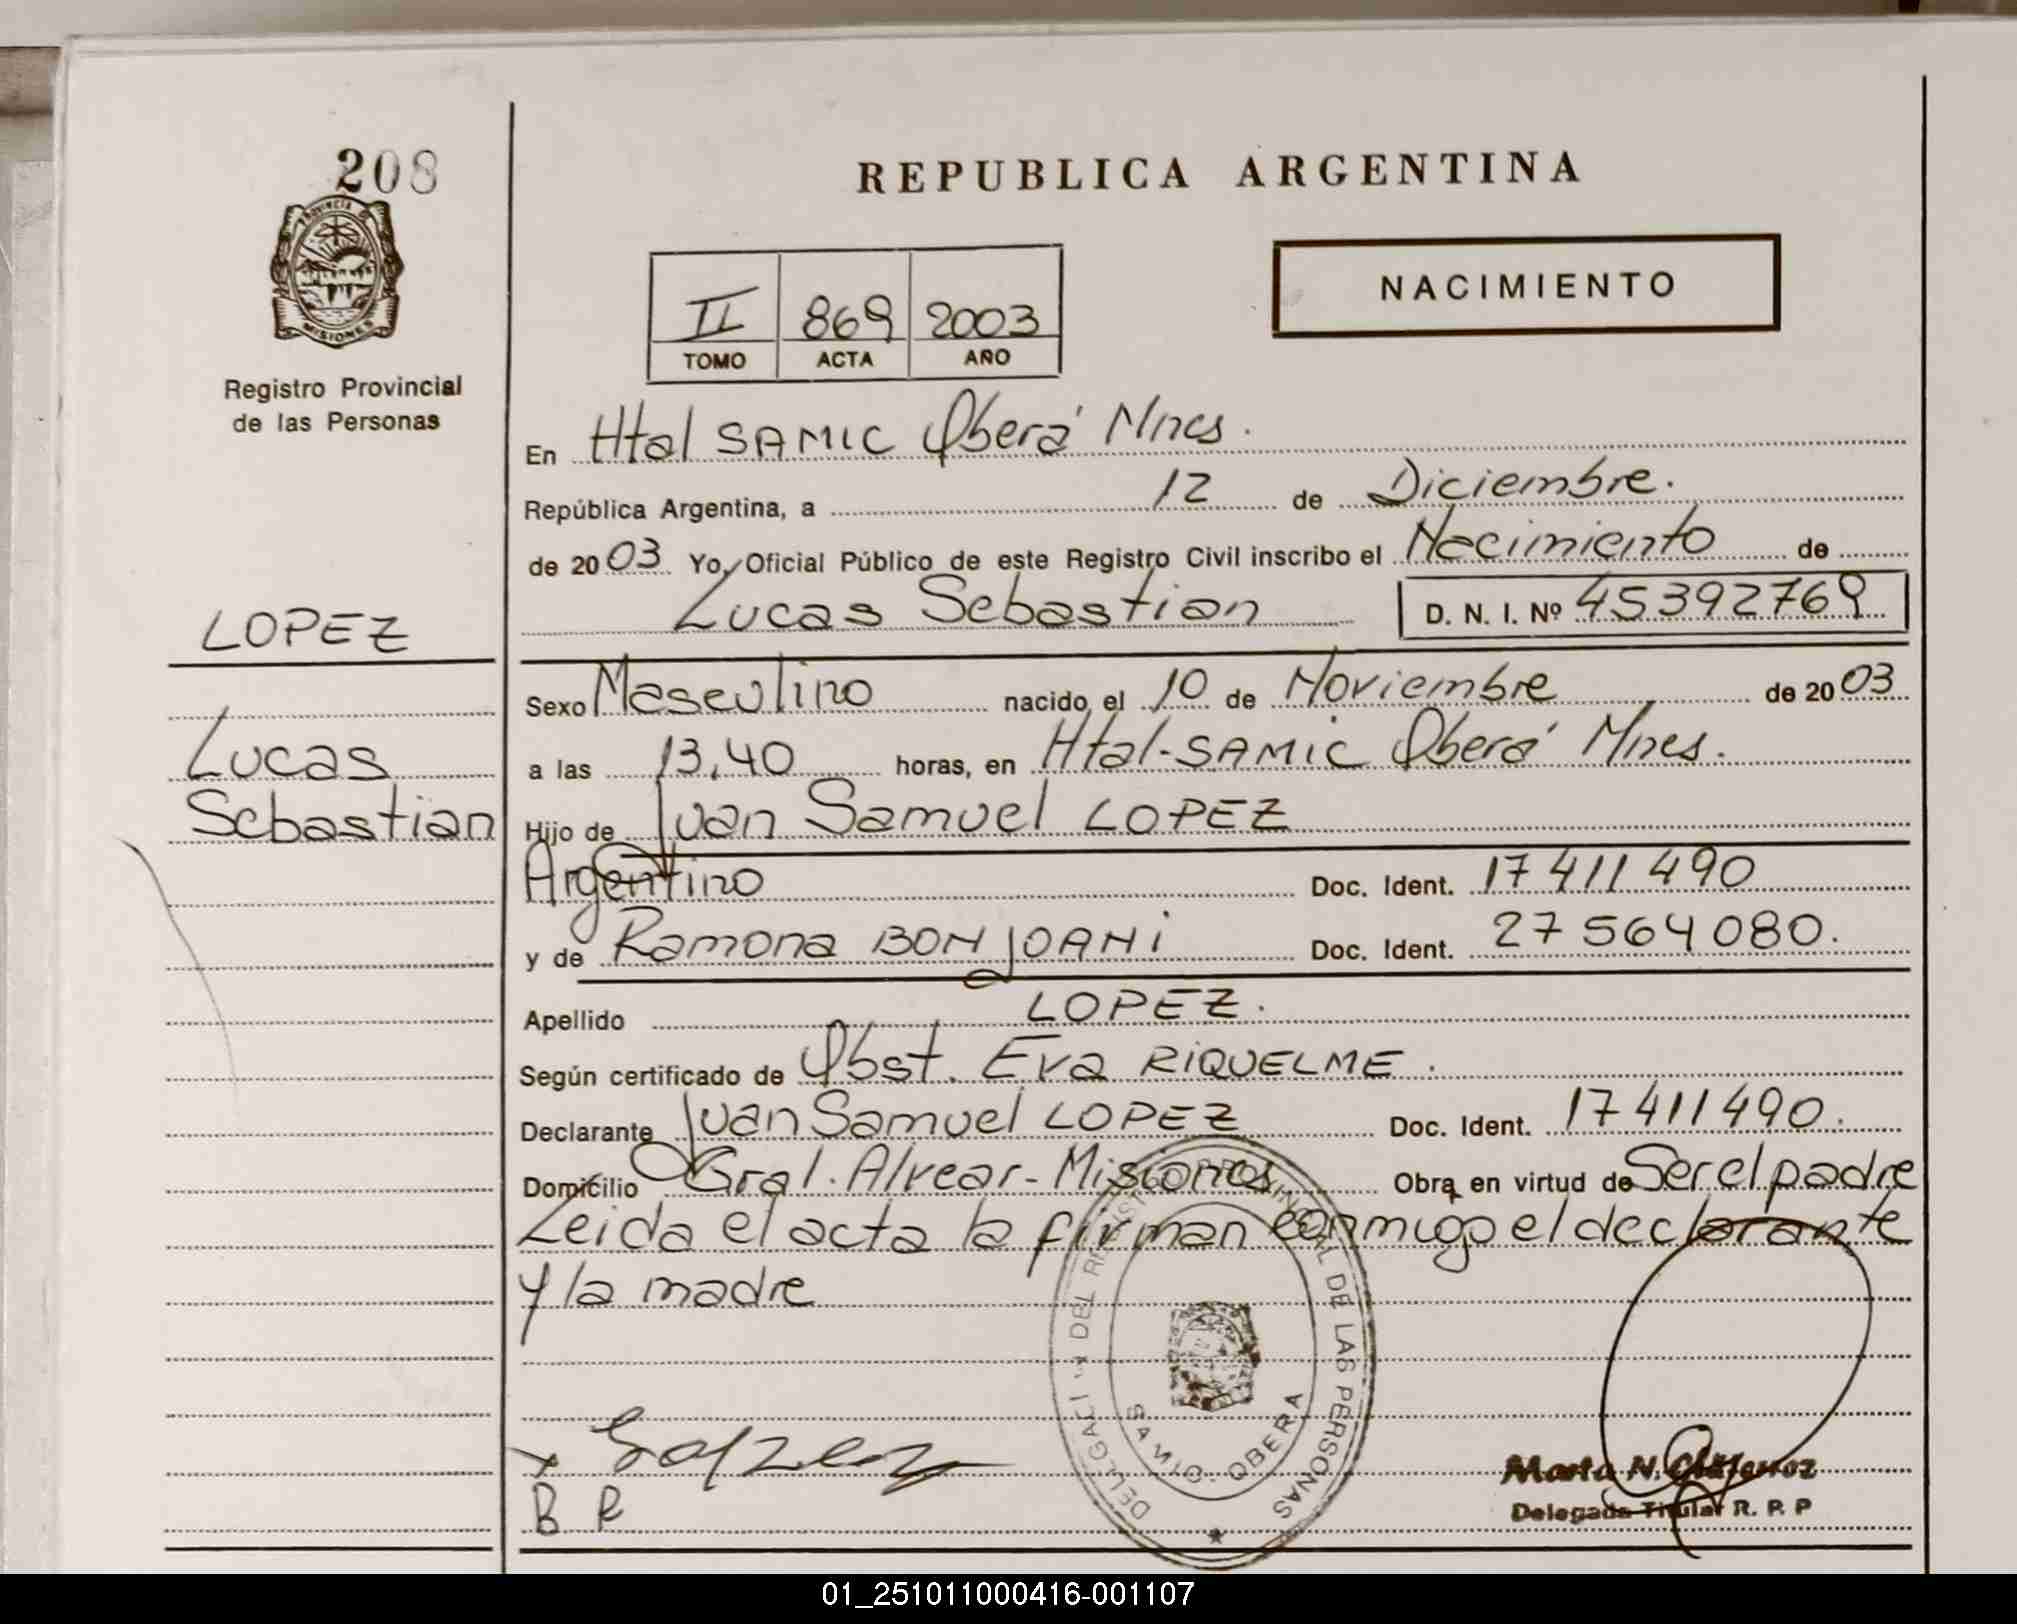 208
PROVINCIA DE
MISIONES
Registro Provincial
de las Personas
REPUBLICA ARGENTINA
NACIMIENTO
II 869 2003
TOMO ACTA AÑO
En Htal SAMIC Oberá Mnes.
República Argentina, a 12 de Diciembre.
de 2003 Yo, Oficial Público de este Registro Civil inscribo el Nacimiento de
Lucas Sebastian D. N. I. Nº 45392769
LOPEZ
Sexo Masculino nacido el 10 de Noviembre de 2003
Lucas
a las 13,40 horas, en Htal-SAMIC Oberá Mnes.
Sebastian
Hijo de Juan Samuel LOPEZ
Argentino Doc. Ident. 17411490
y de Ramona BONJOANi Doc. Ident. 27564080.
Apellido LOPEZ.
Según certificado de Obst. Eva RiQUELME.
Declarante Juan Samuel LOPEZ Doc. Ident. 17411490.
Domicilio Gral. Alvear-Misiones Obra en virtud de Ser el padre
Leida el acta la firman conmigo el declarante
y la madre
DEL REGISTRO PROVINCIAL DE LAS PERSONAS
SAMIC. OBERA
x Lopez
B R
Marta N.
Delegada Titular R. P. P
01_251011000416-001107